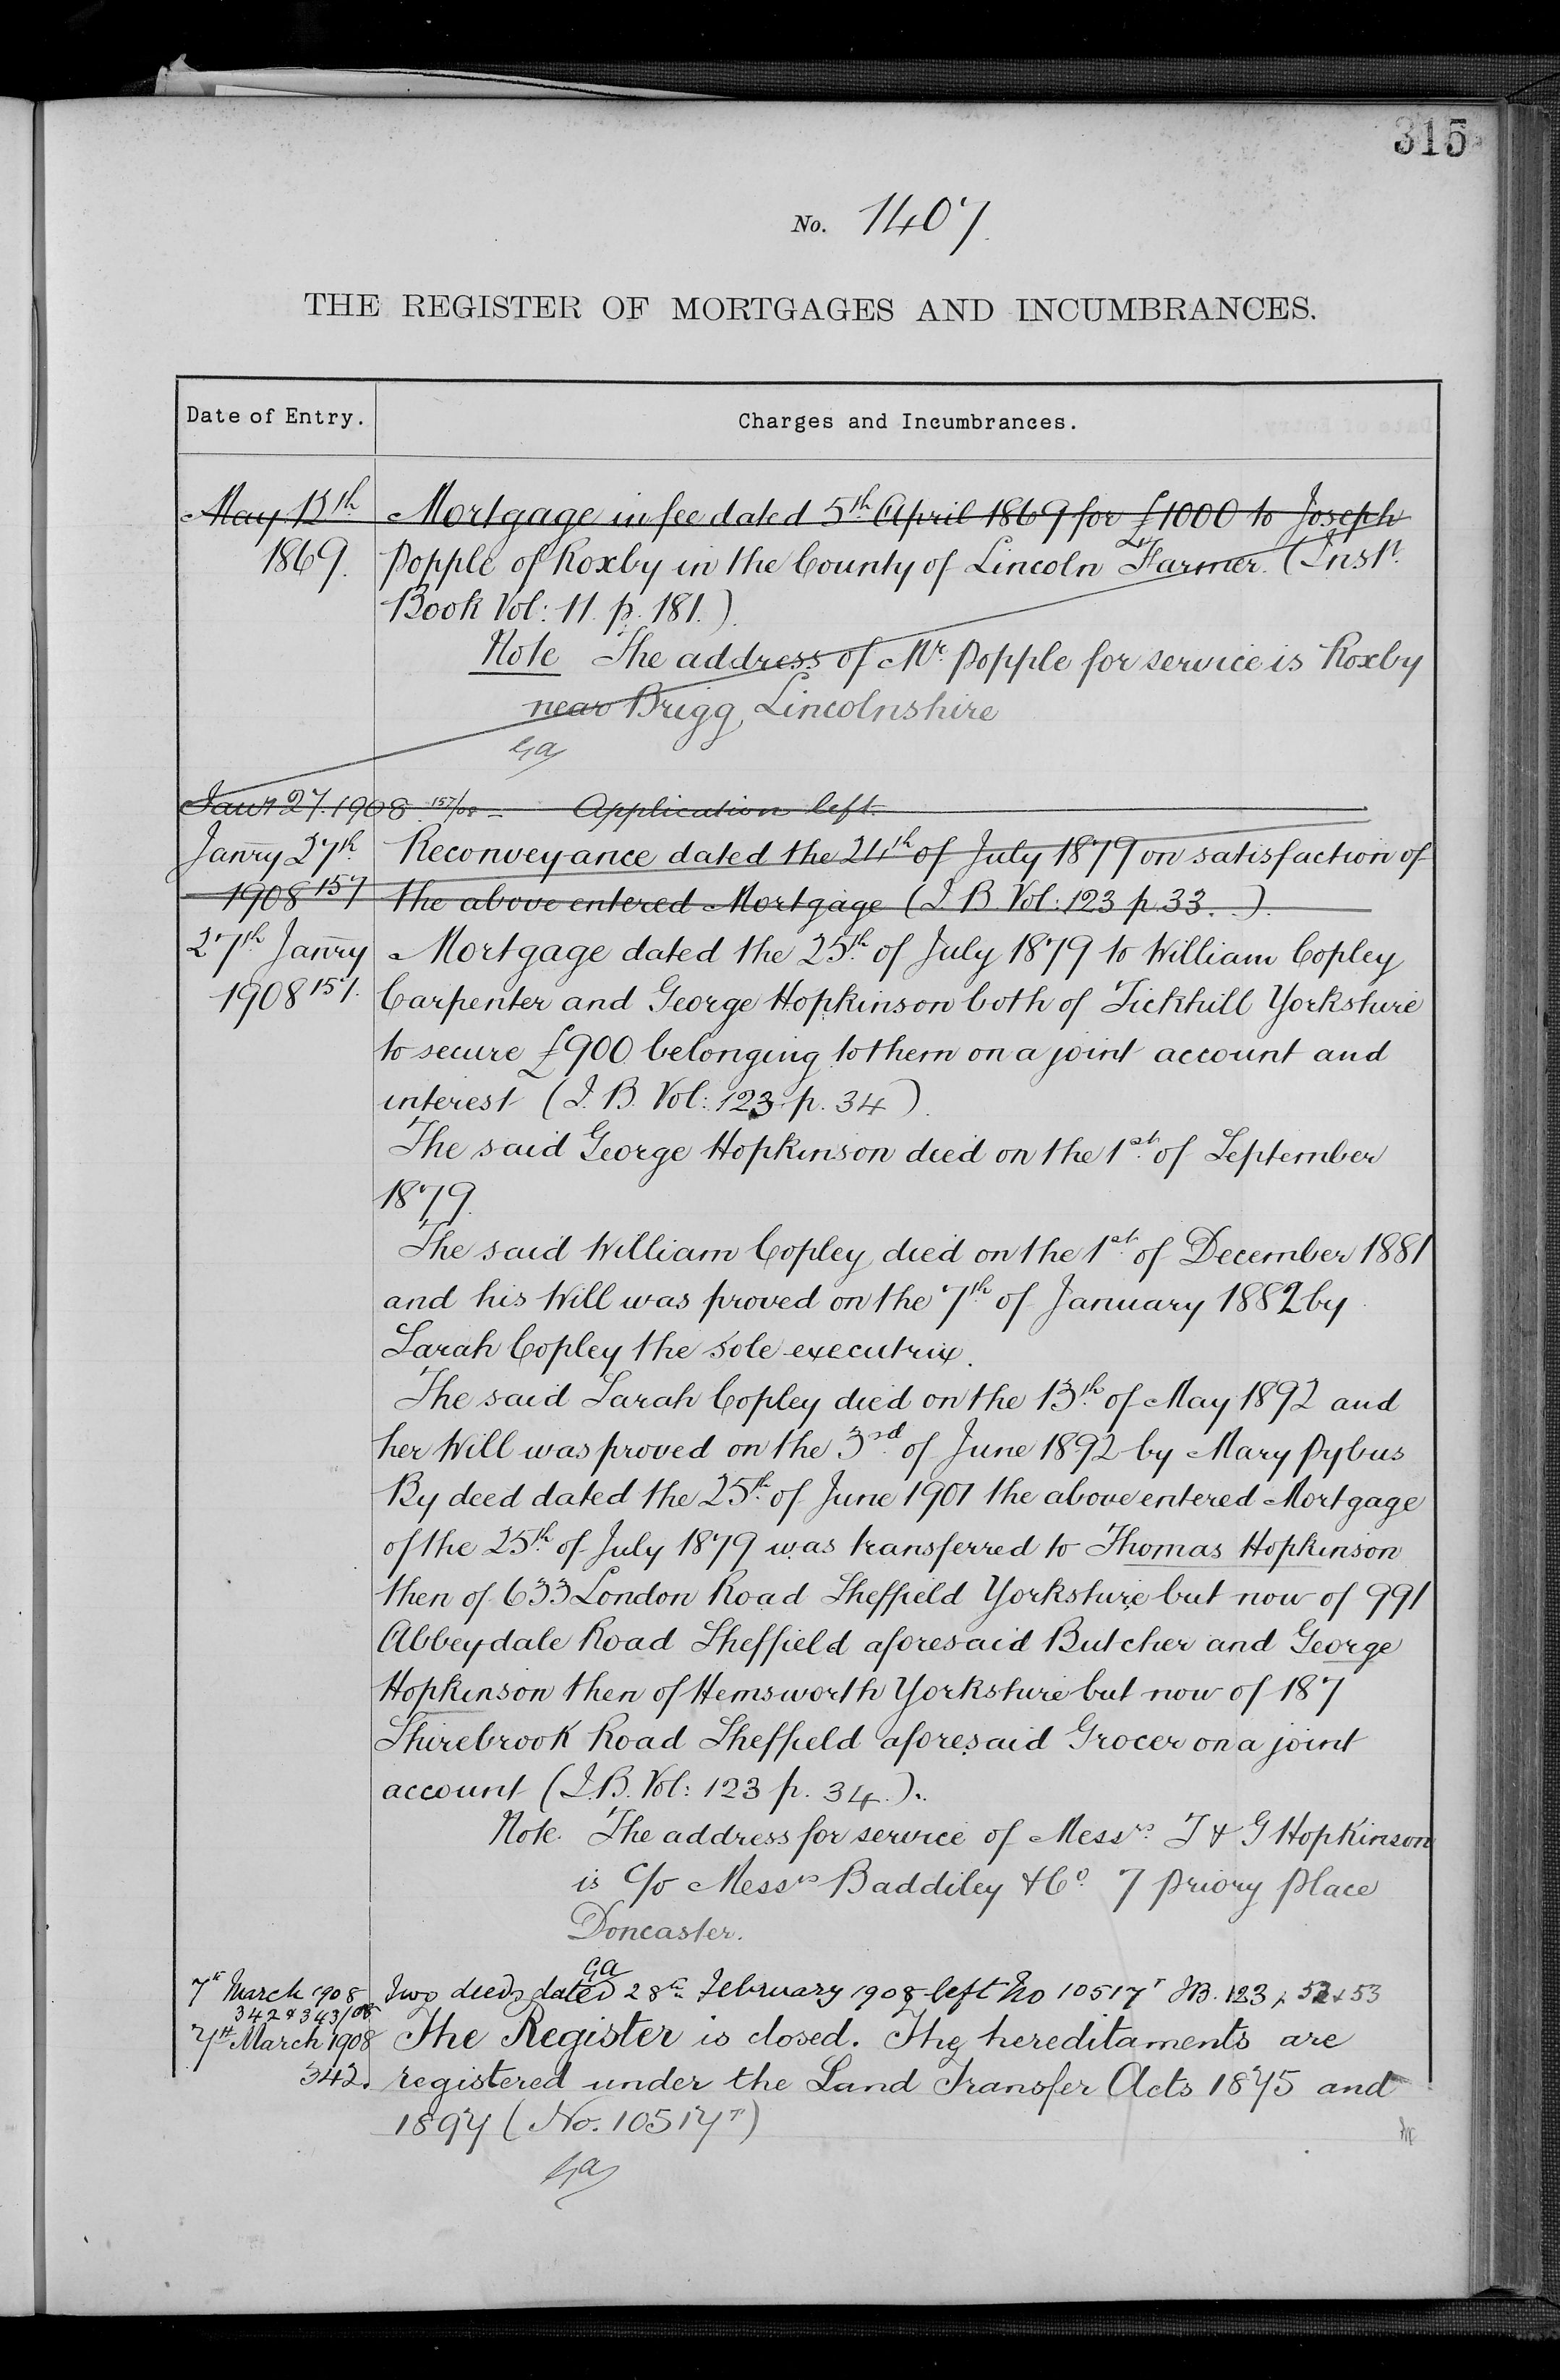 315
No. 1407.
THE REGISTER OF MORTGAGES AND INCUMBRANCES.
Date of Entry. Charges and Incumbrances.
May 13th Mortgage in fee dated 5th April 1869 for £1000 to Joseph
1869. Popple of Roxby in the County of Lincoln Farmer. (Inst
Book Vol: 11. p. 181.).
Note The address of Mr. Popple for service is Roxby
near Brigg, Lincolnshire
GA
Janr 27. 1908 157/08 – Application left.
Janry 27th Reconveyance dated the 24th of July 1879 on satisfaction of
1908 157 the above entered Mortgage (I.B. Vol: 123 p. 33. ).
27th Janry Mortgage dated the 25th of July 1879 to William Copley
1908 157. Carpenter and George Hopkinson both of Tickhill Yorkshire
to secure £900 belonging to them on a joint account and
interest (I.B. Vol: 123 p. 34).
The said George Hopkinson died on the 1st of September
1879.
The said William Copley died on the 1st of December 1881
and his Will was proved on the 7th of January 1882 by
Sarah Copley the sole executrix.
The said Sarah Copley died on the 13th of May 1892 and
her Will was proved on the 3rd of June 1892 by Mary Pybus
By deed dated the 25th of June 1901 the above entered Mortgage
of the 25th of July 1879 was transferred to Thomas Hopkinson
then of 633 London Road Sheffield Yorkshire but now of 991
Abbeydale Road Sheffield aforesaid Butcher and George
Hopkinson then of Hemsworth Yorkshire but now of 187
Shirebrook Road Sheffield aforesaid Grocer on a joint
account (I.B. Vol: 123 p. 34.).
Note. The address for service of Messrs. T & G Hopkinson
is c/o Messrs Baddiley & Co. 7 Priory Place
Doncaster.
GA
7th March 1908 Two deeds dated 28th February 1908 left No 10517T IB. 123 p 52 & 53
342 & 343/08
7th March 1908 The Register is closed. The hereditaments are
342. registered under the Land Transfer Acts 1875 and
1897 (No. 10517T)
GA